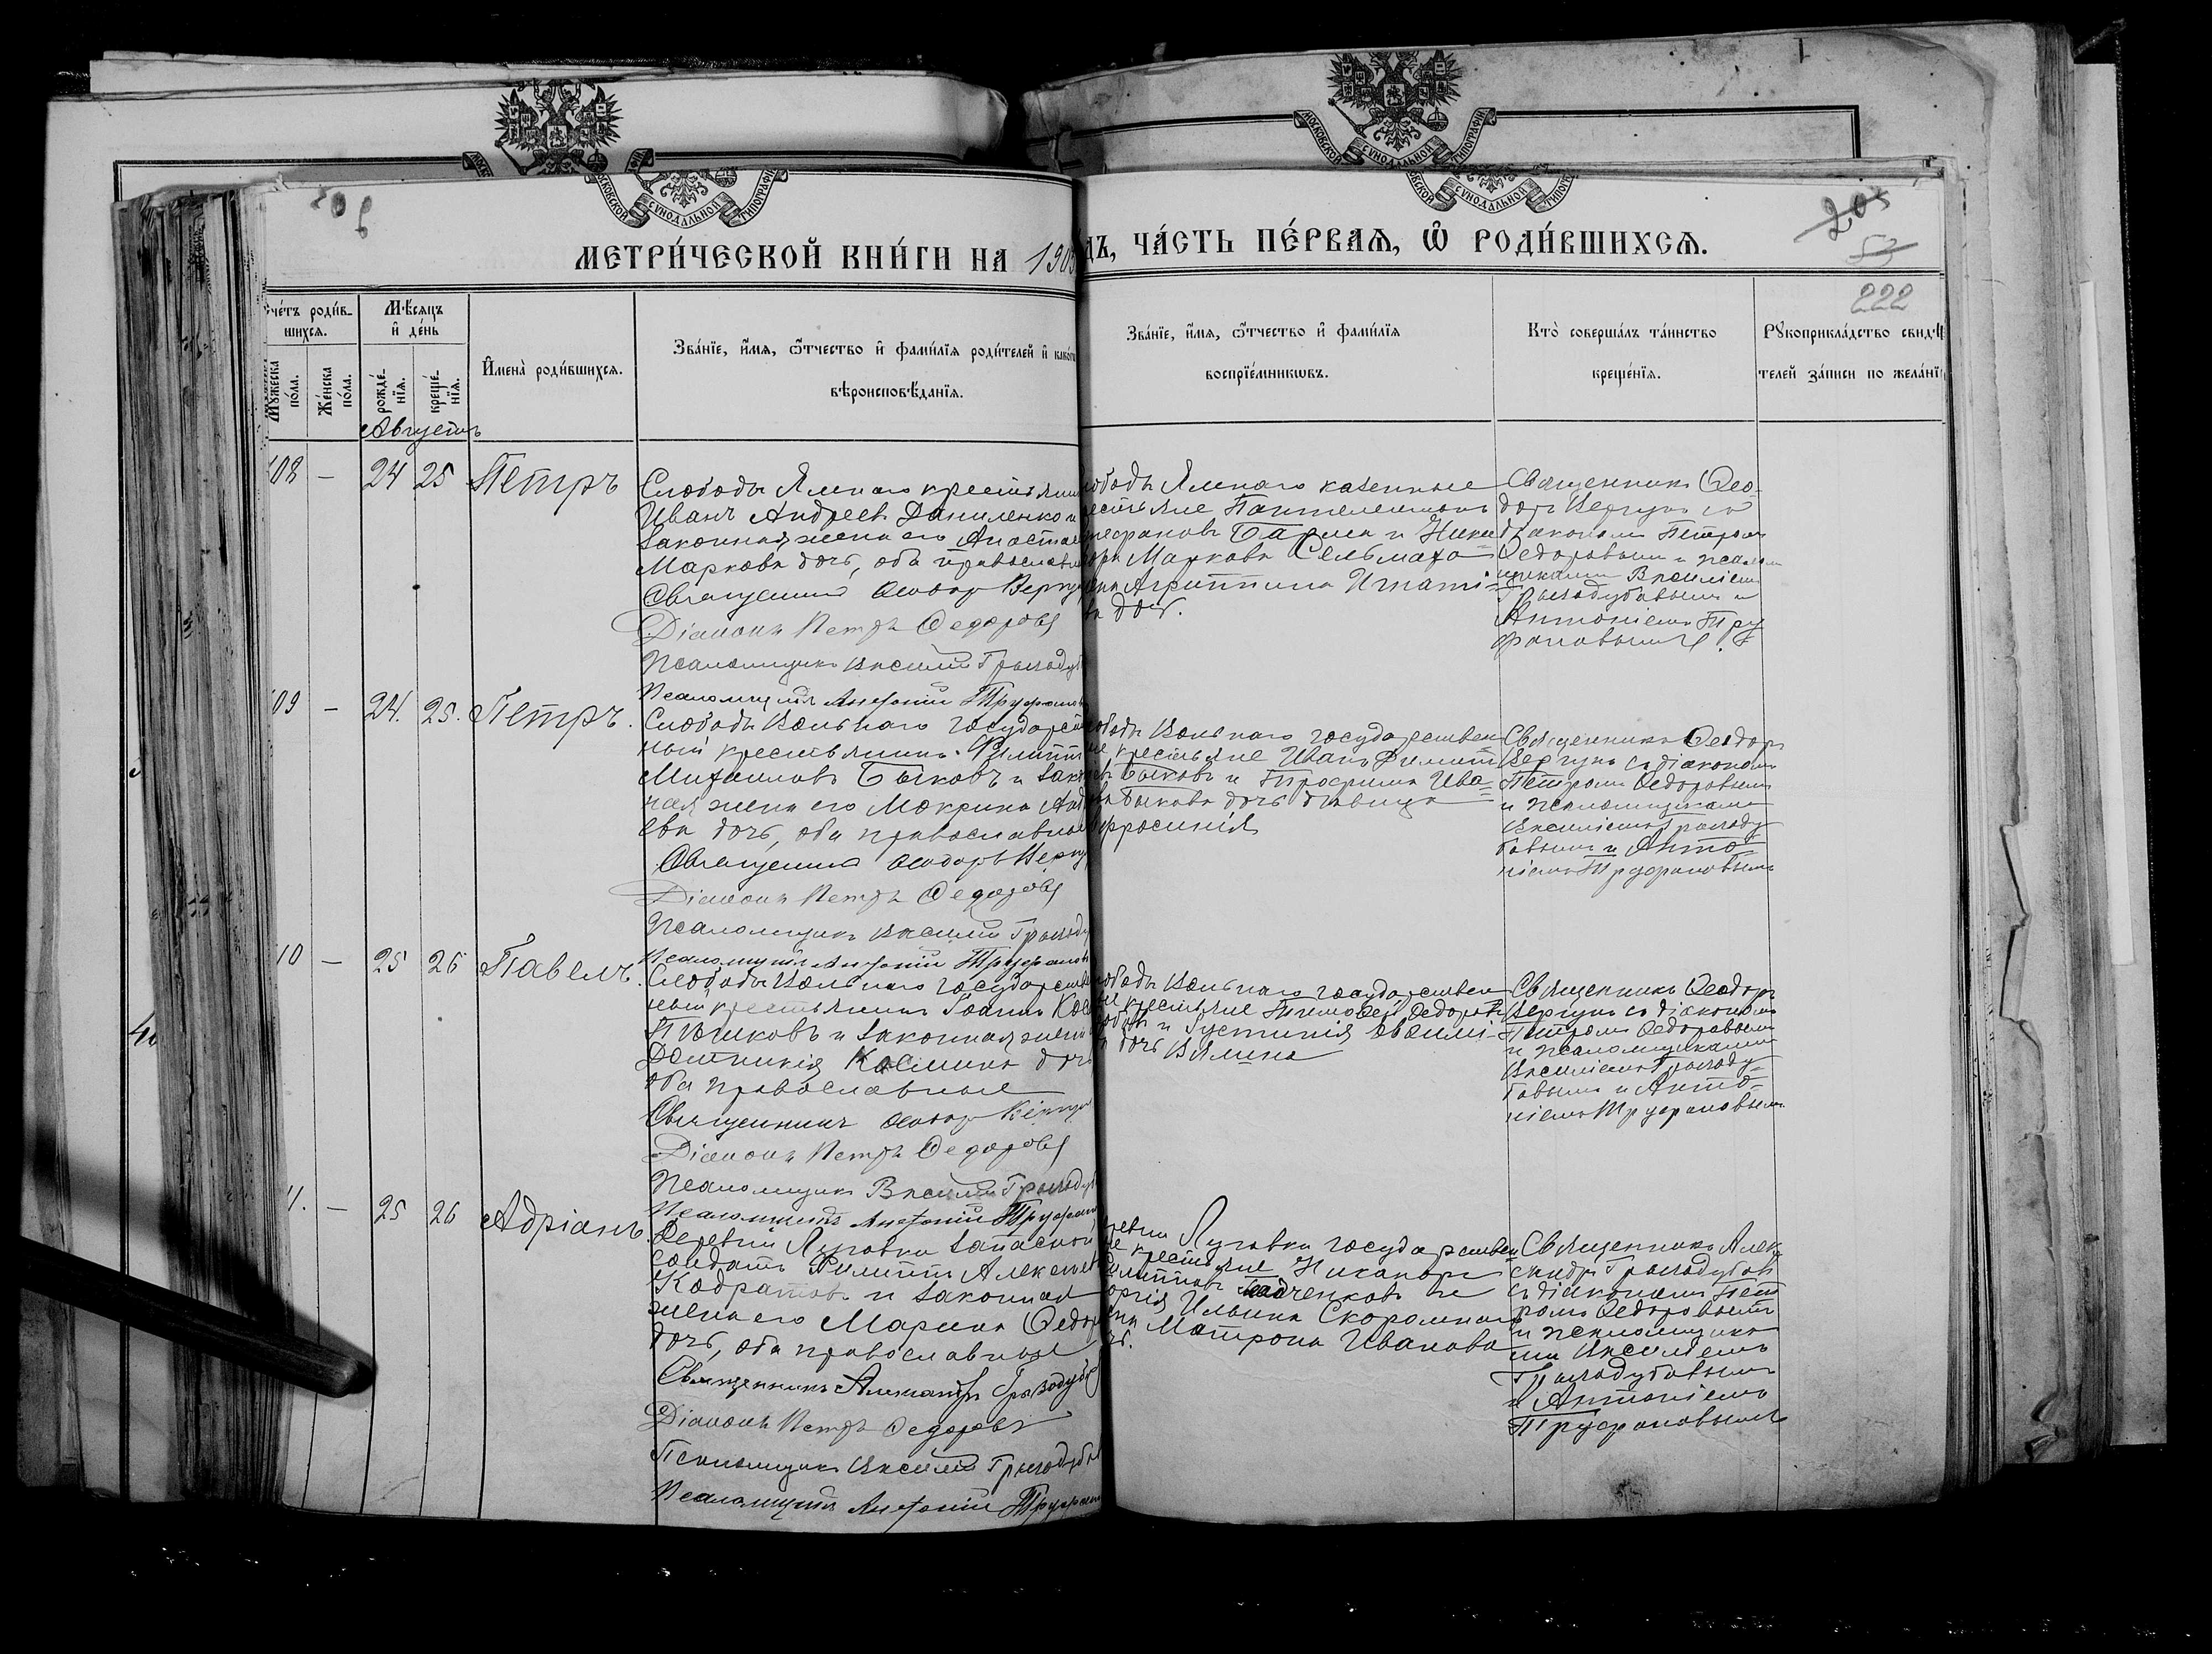 МОСКОВСКОЙ СУНОДАЛЬНОЙ ТИПОГРАФІИ
206
205
53
222
МЕТРИ́ЧЕСКОЙ КНИ́ГИ НА 190
ДЪ, ЧА́СТЬ ПЕ́РВАѦ, Ѡ РОДИ́ВШИХСѦ.
Счетъ роди́в-
шихсѧ.
Мꙋжеска
по́ла.
Же́нска
по́ла.
Мѣ́сѧцъ
и҆ де́нь
рожде́-
нїѧ.
креще́-
нїѧ.
И҆мена̀ роди́вшихсѧ.
Зва́нїе, и҆́мѧ, ѻ҆́тчество и҆ фами́лїѧ роди́телей и҆ како́гѡ
вѣроисповѣ́данїѧ.
Зва́нїе, и҆́мѧ, ѻ҆́тчество и҆ фами́лїѧ
воспрїе́мникѡвъ.
Кто̀ соверша́лъ та́инство
креще́нїѧ.
Рꙋкоприкла́дство свидѣ-
телей за́писи по жела́нїю
Августъ
08 — 24 25 Петръ
Слободы Ямнаго крестьянин
Иванъ Андреевъ Даниленко и
законная жена его Анастас
Маркова дочь, оба православн
Священникъ Ѳеодоръ Вергун
Діаконъ Петръ Ѳедоровъ
Псаломщикъ Василій Грызодуб
Псаломщикъ Антоній Труфанов
ободы Ямнаго казенные
рестьяне Пантелеимонъ
и Ники
ора Маркова
ена Агриппина Игнаті-
ва дочь.
Священникъ Ѳео-
доръ Вергунъ съ
діакономъ Петромъ
Ѳедоровымъ и псалом
щиками Василіемъ
Грызодубовымъ и
Антоніемъ Тру
фановымъ.
09 — 24. 25. Петръ.
Слободы Вольнаго государствен
ный крестьянинъ Филиппъ
Михаиловъ Быковъ и закон
ная жена его Мокрина Анд
ева дочь, оба православные
Священникъ Ѳеодоръ Вергун
Діаконъ Петръ Ѳедоровъ
Псаломщикъ Василій Грызоду
Псаломщикъ Антоній Труфанов
ободы Вольнаго государствен
ые крестьяне Иванъ Филипп
евъ Быковъ и Трофима Ива-
ва Быкова дочь дѣвица
фросинія
Священникъ Ѳеодоръ
Вергунъ съ діакономъ
Петромъ Ѳедоровымъ
и псаломщиками
Василіемъ Грызоду
бовымъ и Анто-
ніемъ Труфановымъ
10 — 25 26 Павелъ.
Слободы Вольнаго государствен
ный крестьянинъ Іоаннъ
и законная жена
Домникія Космина дочь
оба православные
Священникъ Ѳеодоръ Вергун
Діаконъ Петръ Ѳедоровъ
Псаломщикъ Василій Грызодуб
Псаломщикъ Антоній Труфанов
ободы Вольнаго государствен
ые крестьяне Тимоѳей Ѳедоровъ
и Густинія Евѳимі-
а дочь
Священникъ Ѳеодоръ
Вергунъ съ діакономъ
Петромъ Ѳедоровымъ
и псаломщиками
Василіемъ Грызоду-
бовымъ и Анто-
ніемъ Труфановымъ.
11. — 25 26 Адріанъ.
Деревни Луговки запасной
солдатъ Филиппъ Алексеев
Кодратовъ и законная
жена его Марина Ѳедор
дочь, оба православные
Священникъ Александръ Грызодубов
Діаконъ Петръ Ѳедоровъ
Псаломщикъ Василій Грызодубов
Псаломщикъ Антоній Труфанов
ревни Луговки государствен
ые крестьяне Никаноръ
Филипповъ и
оргія Ильина Скоромнаго
ена Матрона Иванова
чь.
Священникъ Алек-
сандръ Грызодубовъ
съ діакономъ Пет
ромъ Ѳедоровымъ
и псаломщика
ми Василіемъ
Грызодубовымъ
и Антоніемъ
Труфановымъ